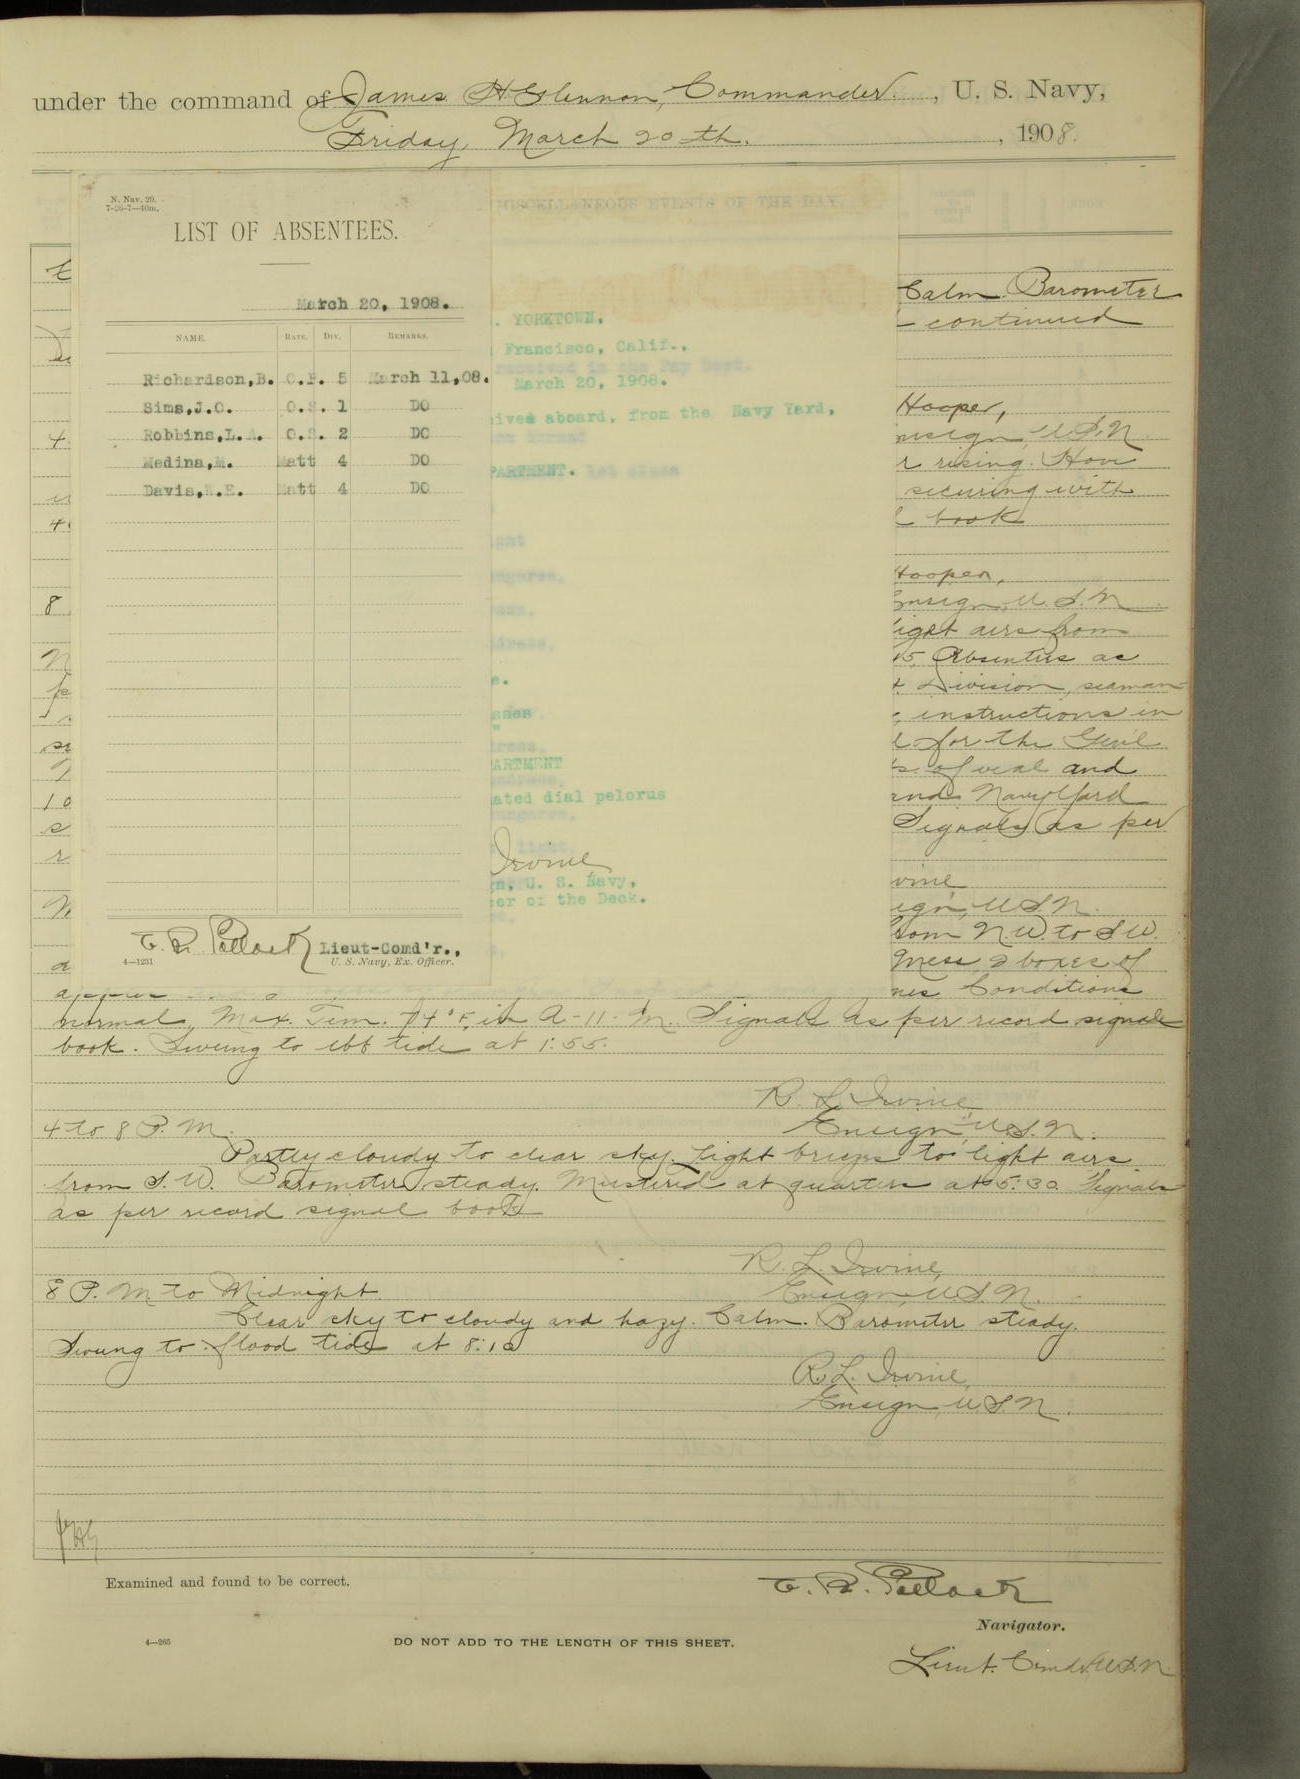 under the command of James H Glennon, Commander, U. S. Navy,
Friday, March 20th. , 1908.
N. Nav. 29.
7-26-7—40m.
LIST OF ABSENTEES.
March 20, 1908.
NAME. RATE. DIV. REMARKS.
Richardson, B. O.P. 5 March 11,08.
Sims, J.O. O.S. 1 DO
Robbins, L.A. O.S. 2 DO
Medina, M. Matt 4 DO
Davis, W.E. Matt 4 DO
Lieut-Comd'r.,
4—1231
U. S. Navy, Ex. Officer.
MISCELLANEOUS EVENTS OF THE DAY.
. YORKTOWN.
Francisco, Calif.,
March 20, 1908.
ived aboard, from the Navy Yard,
PARTMENT.
ARTMENT
ated dial pelorus
Irvine
n, U. S. Navy,
er of the Deck.
Calm. Barometer
continued
Hooper,
nsign, U.S.N.
r rising. Hove
securing with
book
Hooper,
Ensign, U.S.N
ight airs from
45. Absentees as
division, seaman-
instructions in
for the Genl
of veal and
and Navy Yard
Signals as per
vine
ign, U.S.N.
from N.W. to S.W.
Mess, 2 boxes of
nes. Conditions
normal, Max. Tem. 74° F. in A-11-M. Signals as per record signal
book. Swung to ebb tide at 1:55.
R. L. Irvine
Ensign, U.S.N.
4 to 8 P. M.
Partly cloudy to clear sky. Light breezes to light airs
from S.W. Barometer steady. Mustered at quarters at 5:30. Signals
as per record signal book
R. L. Irvine,
Ensign, U.S.N.
8 P. M. to Midnight
Clear sky to cloudy and hazy. Calm. Barometer steady.
Swung to flood tide at 8:10
R. L. Irvine,
Ensign, U.S.N.
Examined and found to be correct.
Pollock
Navigator.
4—265
DO NOT ADD TO THE LENGTH OF THIS SHEET.
Lieut. Comdr. U.S.N